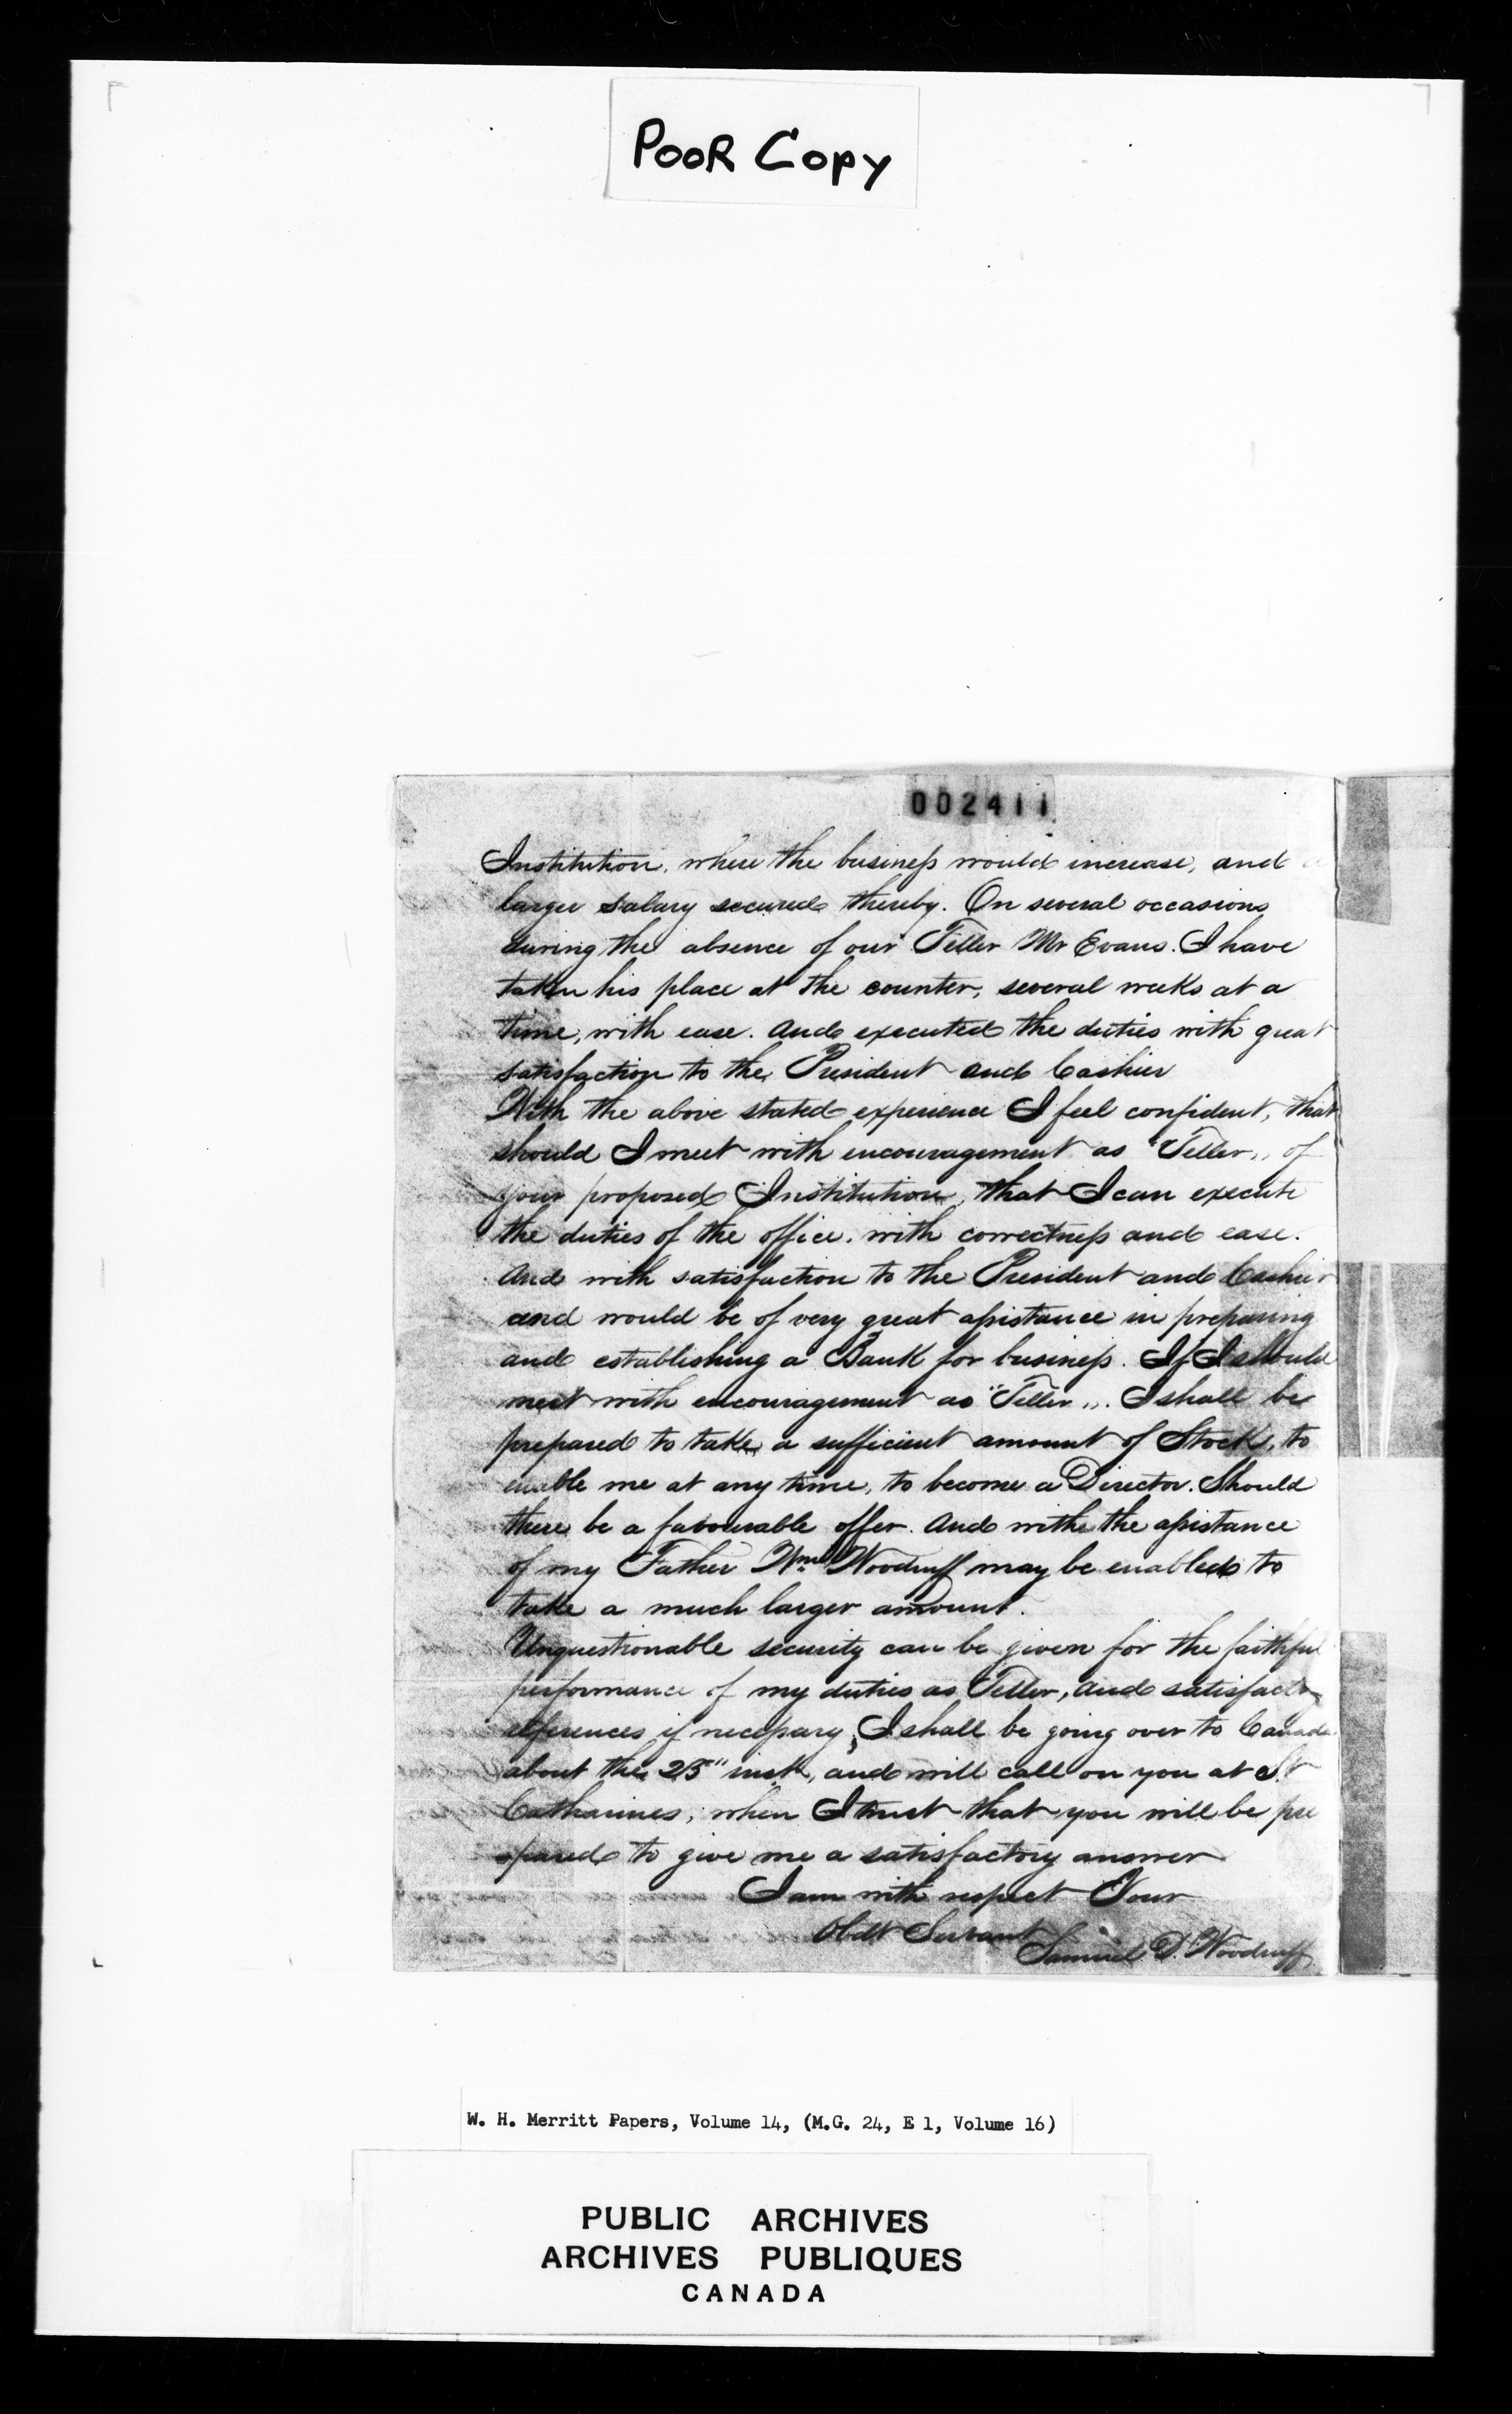 POOR COPY
002411
Institution, where the business would increase, and a
larger salary secured thereby. On several occasions
during the absence of our Teller Mr Evans. I have
taken his place at the counter, several weeks at a
time, with ease. And executed the duties with great
satisfaction to the President and Cashier
With the above stated experience I feel confident, that
should I meet with encouragement as "Teller,, of
your proposed Institution, that I can execute
the duties of the office, with correctness and ease.
And with satisfaction to the President and Cashier
and would be of very great assistance in preparing
and establishing a Bank for business. If I should
meet with encouragement as "Teller,,. I shall be
prepared to take a sufficient amount of Stock, to
enable me at any time, to become a Director. Should
there be a favourable offer. And with the assistance
of my Father Wm Woodruff may be enabled to
take a much larger amount.
Unquestionable security can be given for the faithful
performance of my duties as Teller, and satisfactory
references if necessary, I shall be going over to Canada
about the 25" inst, and will call on you at St
Catharines, when I trust that you will be pre
pared to give me a satisfactory answer
I am with respect Your
Obdt Servant
Samuel D. Woodruff
W. H. Merritt Papers, Volume 14, (M.G. 24, E 1, Volume 16)
PUBLIC ARCHIVES
ARCHIVES PUBLIQUES
CANADA